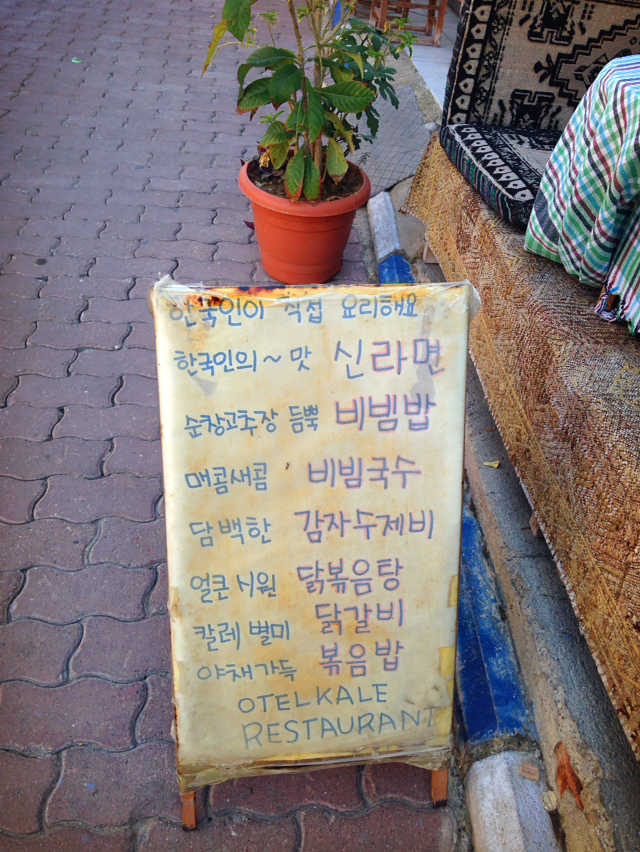 한국인이 직접 요리해요
한국인의~맛 신라면
순창고추장 듬뿍 비빔밥
매콤새콤 비빔국수
담백한 감자수제비
얼큰시원 닭볶음탕
칼레별미 닭갈비
야채가득 볶음밥
OTEL KALE
RESTAURANT